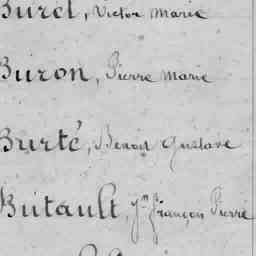 Burel, Victor Marie
Buron, Pierre Marie
Burté, Benoit Gustave
Butault, Jn François Pierre